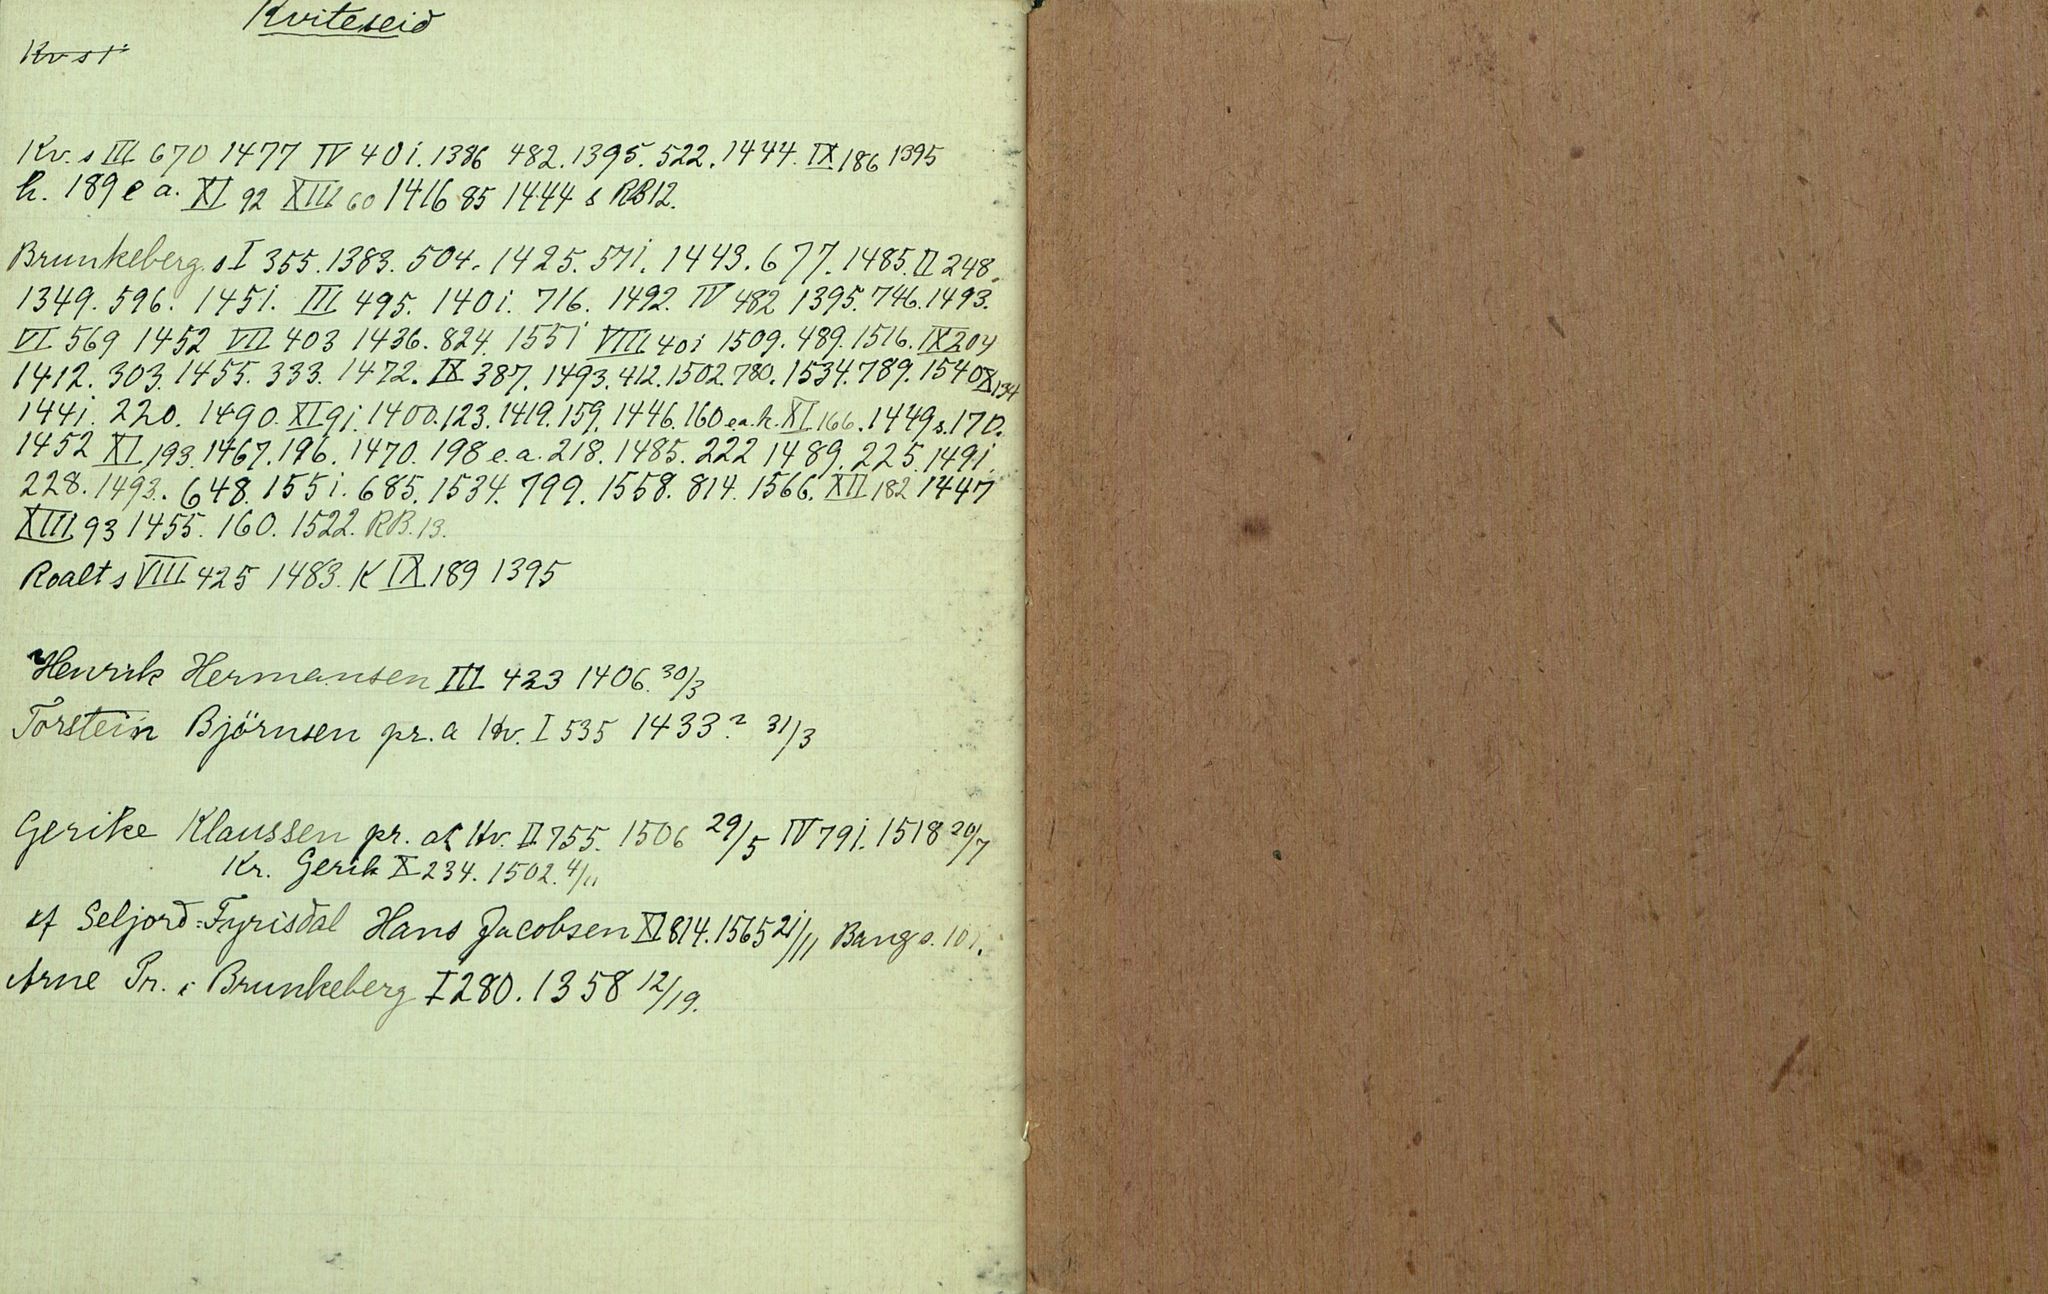 Kviteseid
Kv. s III 670 1477 IV 401. 1386 482. 1395. 522. 1444. IX 186 1395
h. 189 e a. XI 92 XIII 60 1416 85 1444 s RB12.
Brunkeberg s I 355. 1383. 504. 1425. 571. 1443. 677. 1485. II 248.
1349. 596. 1451. III 495. 1401. 716. 1492. IV 482 1395. 746. 1493.
VI 569 1452 VII 403 1436. 824. 1551 VIII 401 1509. 489. 1516. IX 204
1412. 303. 1455. 333. 1472. IX 387. 1493. 412. 1502. 780. 1534. 789. 1540 X 134
1441. 220. 1490. XI 91. 1400. 123. 1419. 159. 1446. 160 e a. h. XI 166. 1449 s. 170.
1452 XI 193. 1467. 196. 1470. 198 e. a. 218. 1485. 222 1489. 225. 1491.
228. 1493. 648. 1551. 685. 1534. 799. 1558. 814. 1566. XII 182 1447
XIII 93 1455. 160. 1522. RB. 13.
Roalt s VIII 425 1483. K IX 189 1395
Henrik Hermansen III 423 1406. 30/3
Torstein Björnsen pr. a Kv. I 535 1433? 31/3
Gerike Klaussen pr. at Kv. II 755. 1506 29/5 IV 791. 1518 20/7
Kr. Gerik X 234. 1502. 4/11
af Seljord: Fyrisdal Hans Jacobsen XI 814. 1565 21/11 Bang s. 101.
Arne Pr. i Brunkeberg I 280. 1358 12/19.